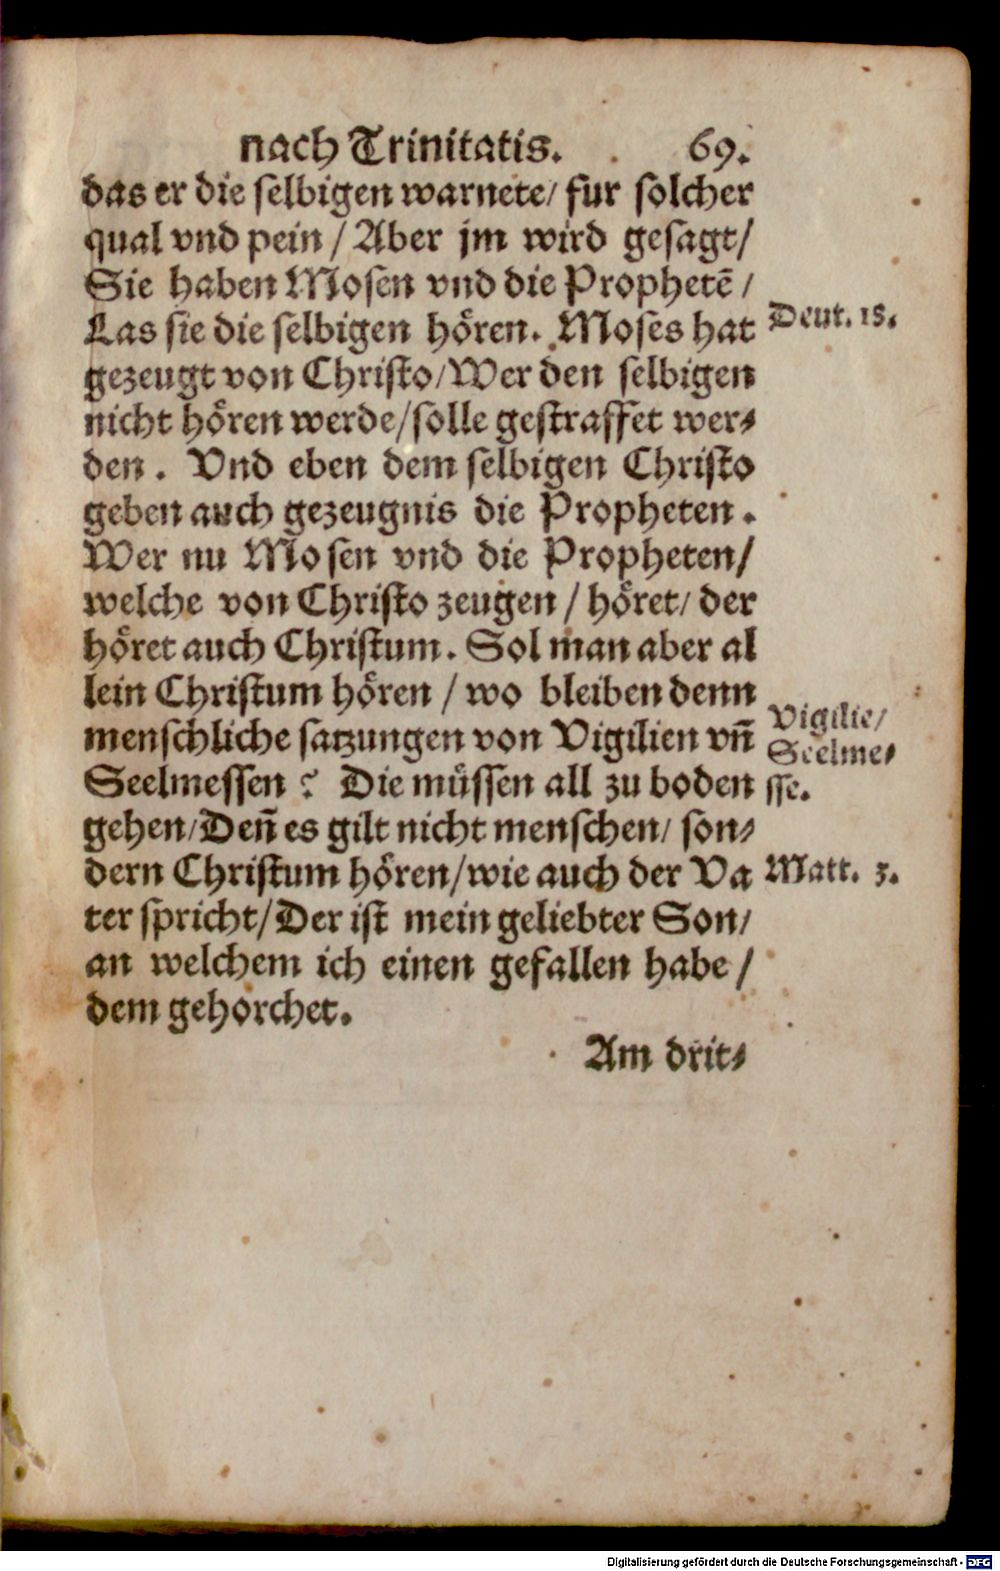 nach Trinitatis. 69.
das er die selbigen warnete/ fur solcher
qual vnd pein / Aber jm wird gesagt/
Sie haben Mosen vnd die Prophetē /
Las sie die selbigen hören. Moses hat
Deut. 18.
gezeugt von Christo/Wer den selbigen
nicht hören werde/solle gestraffet wer⸗
den. Vnd eben dem selbigen Christo
geben auch gezeugnis die Propheten.
Wer nu Mosen vnd die Propheten/
welche von Christo zeugen / höret/ der
höret auch Christum. Sol man aber al
lein Christum hören / wo bleiben denn
menschliche satzungen von Vigilien vn̄
Seelmessen? Die müssen all zu boden
Vigilie/
Seelme⸗
sse.
gehen/Den̄ es gilt nicht menschen/ son⸗
dern Christum hören/wie auch der Va
Matt. 3.
ter spricht/Der ist mein geliebter Son/
an welchem ich einen gefallen habe /
dem gehorchet.
Am drit⸗
Digitalisierung gefördert durch die Deutsche Forschungsgemeinschaft - DFG